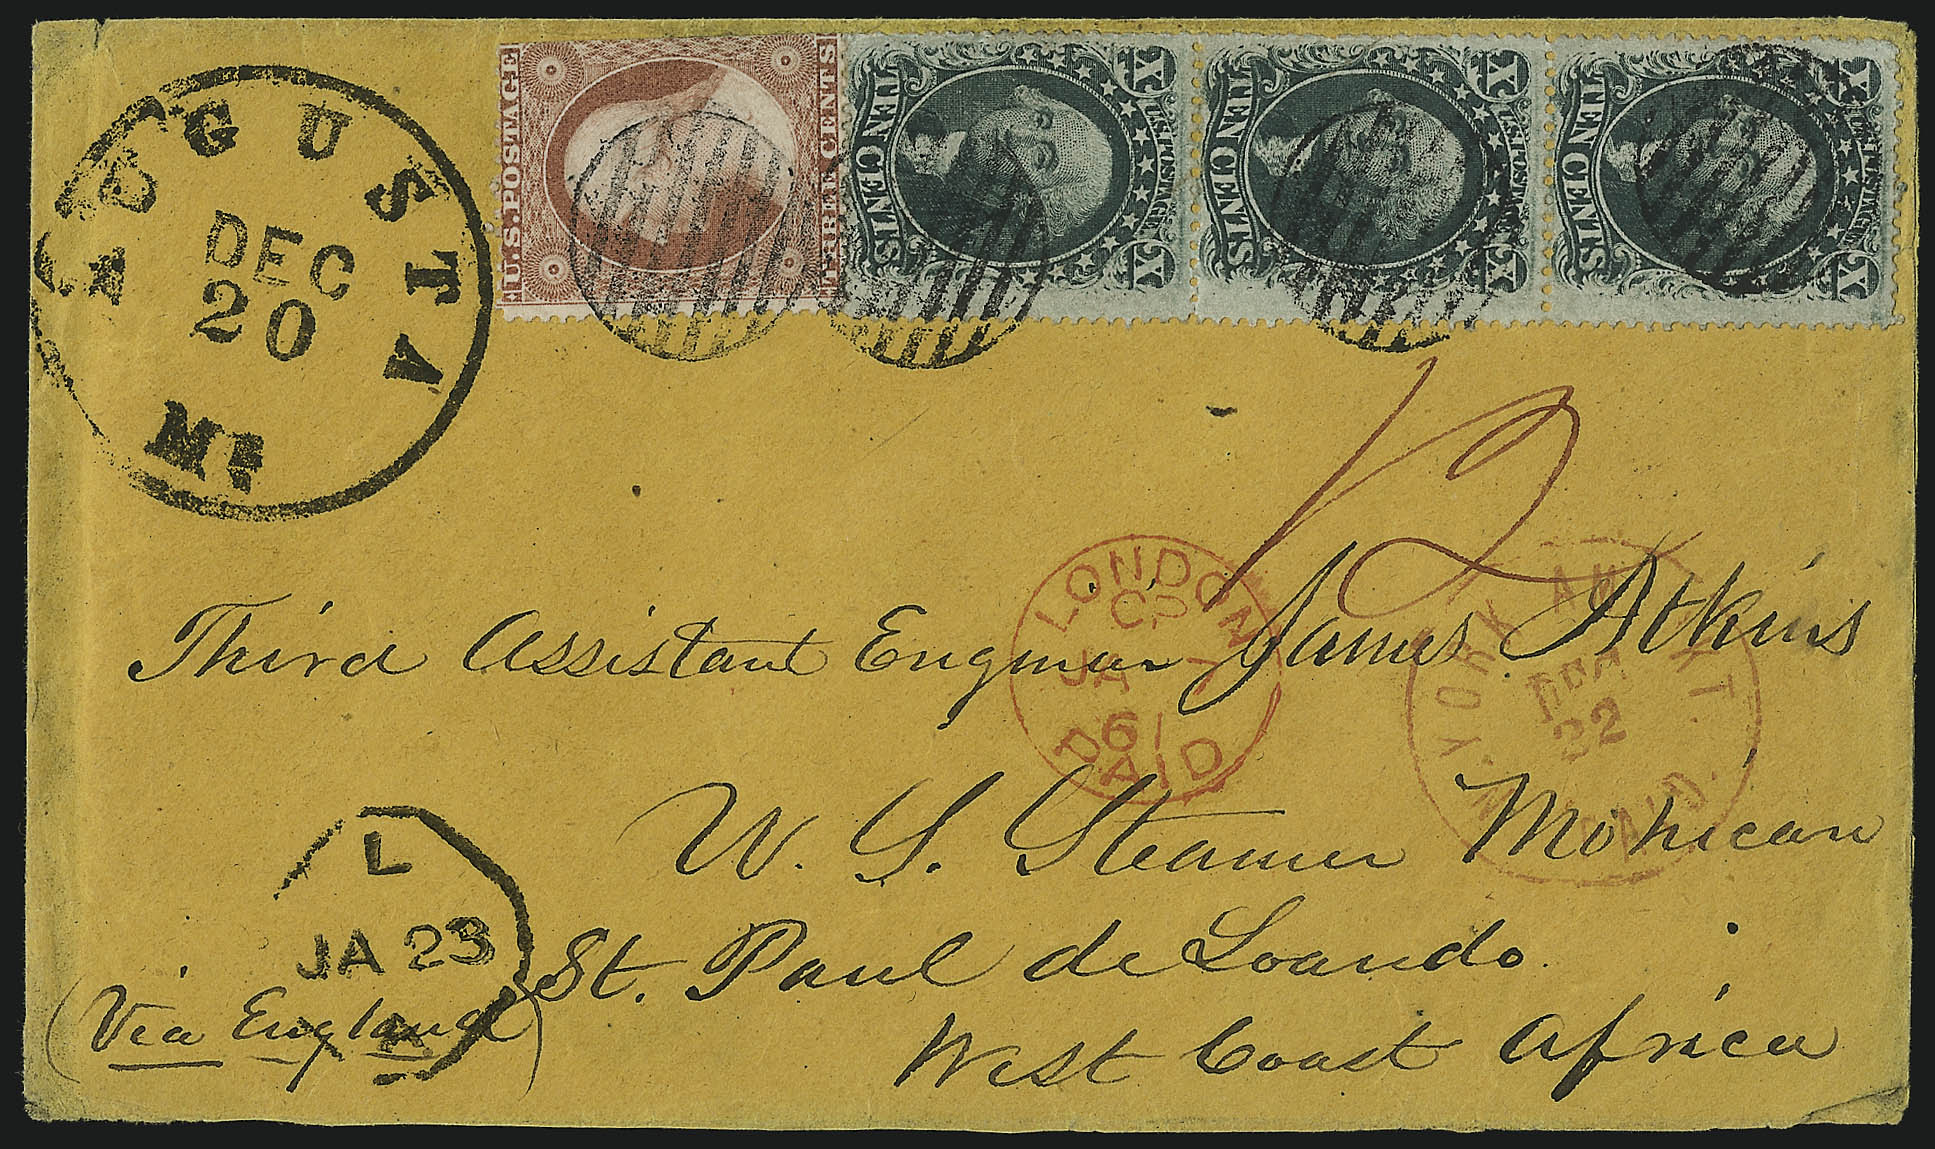 AUGUSTA
DEC
20
Me
U.S. POSTAGE
THREE CENTS
X U.S. POSTAGE X
TEN CENTS
X U.S. POSTAGE X
TEN CENTS
X U.S. POSTAGE X
TEN CENTS
12
LONDON
JA 7
61
PAID
N. YORK AM. PKT.
DEC
22
PAID
Third Assistant Engineer James Atkins
U. S. Steamer Mohican
St. Paul de Loando.
West Coast Africa
(Via England)
L
JA 23
A